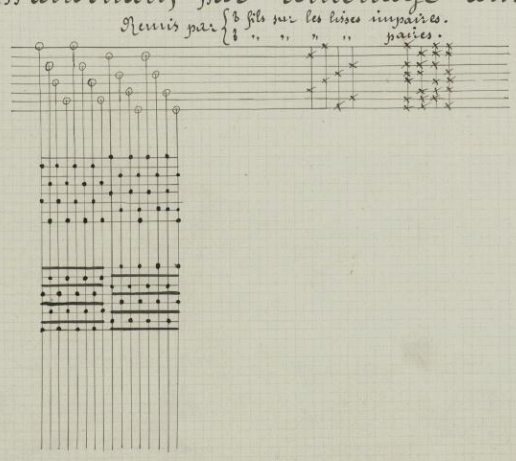 par
Remis par { 8 fils sur les lisses impaires.
8 " " " " paires.